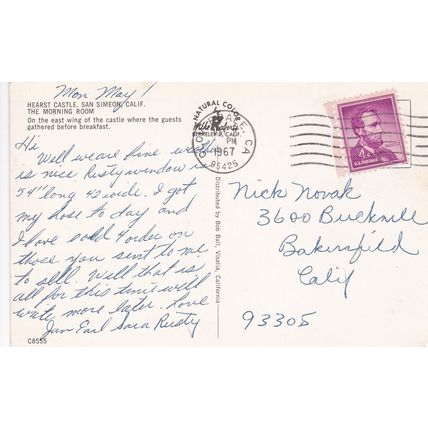 Mon May 1
HEARST CASTLE, SAN SIMEON, CALIF.
THE MORNING ROOM
On the east wing of the castle where the guests
gathered before breakfast.
Hi
Well we are fine weather
is nice. Rusty window is
54" long 42 wide. I got
my hose to day and
I have sold 4 order on
those you sent to me
to sell. Well that is
all for this time will
write more later. Love
Jam Earl Sara Rusty
C8555
Distributed by Bob Ball, Visalia, California
NATURAL COLOR
Mike Roberts
BERKELEY, CALIF.
CA
PM
1967
95425
U.S. POSTAGE
Nick Novak
3600 Bucknell
Bakersfield
Calif
93305